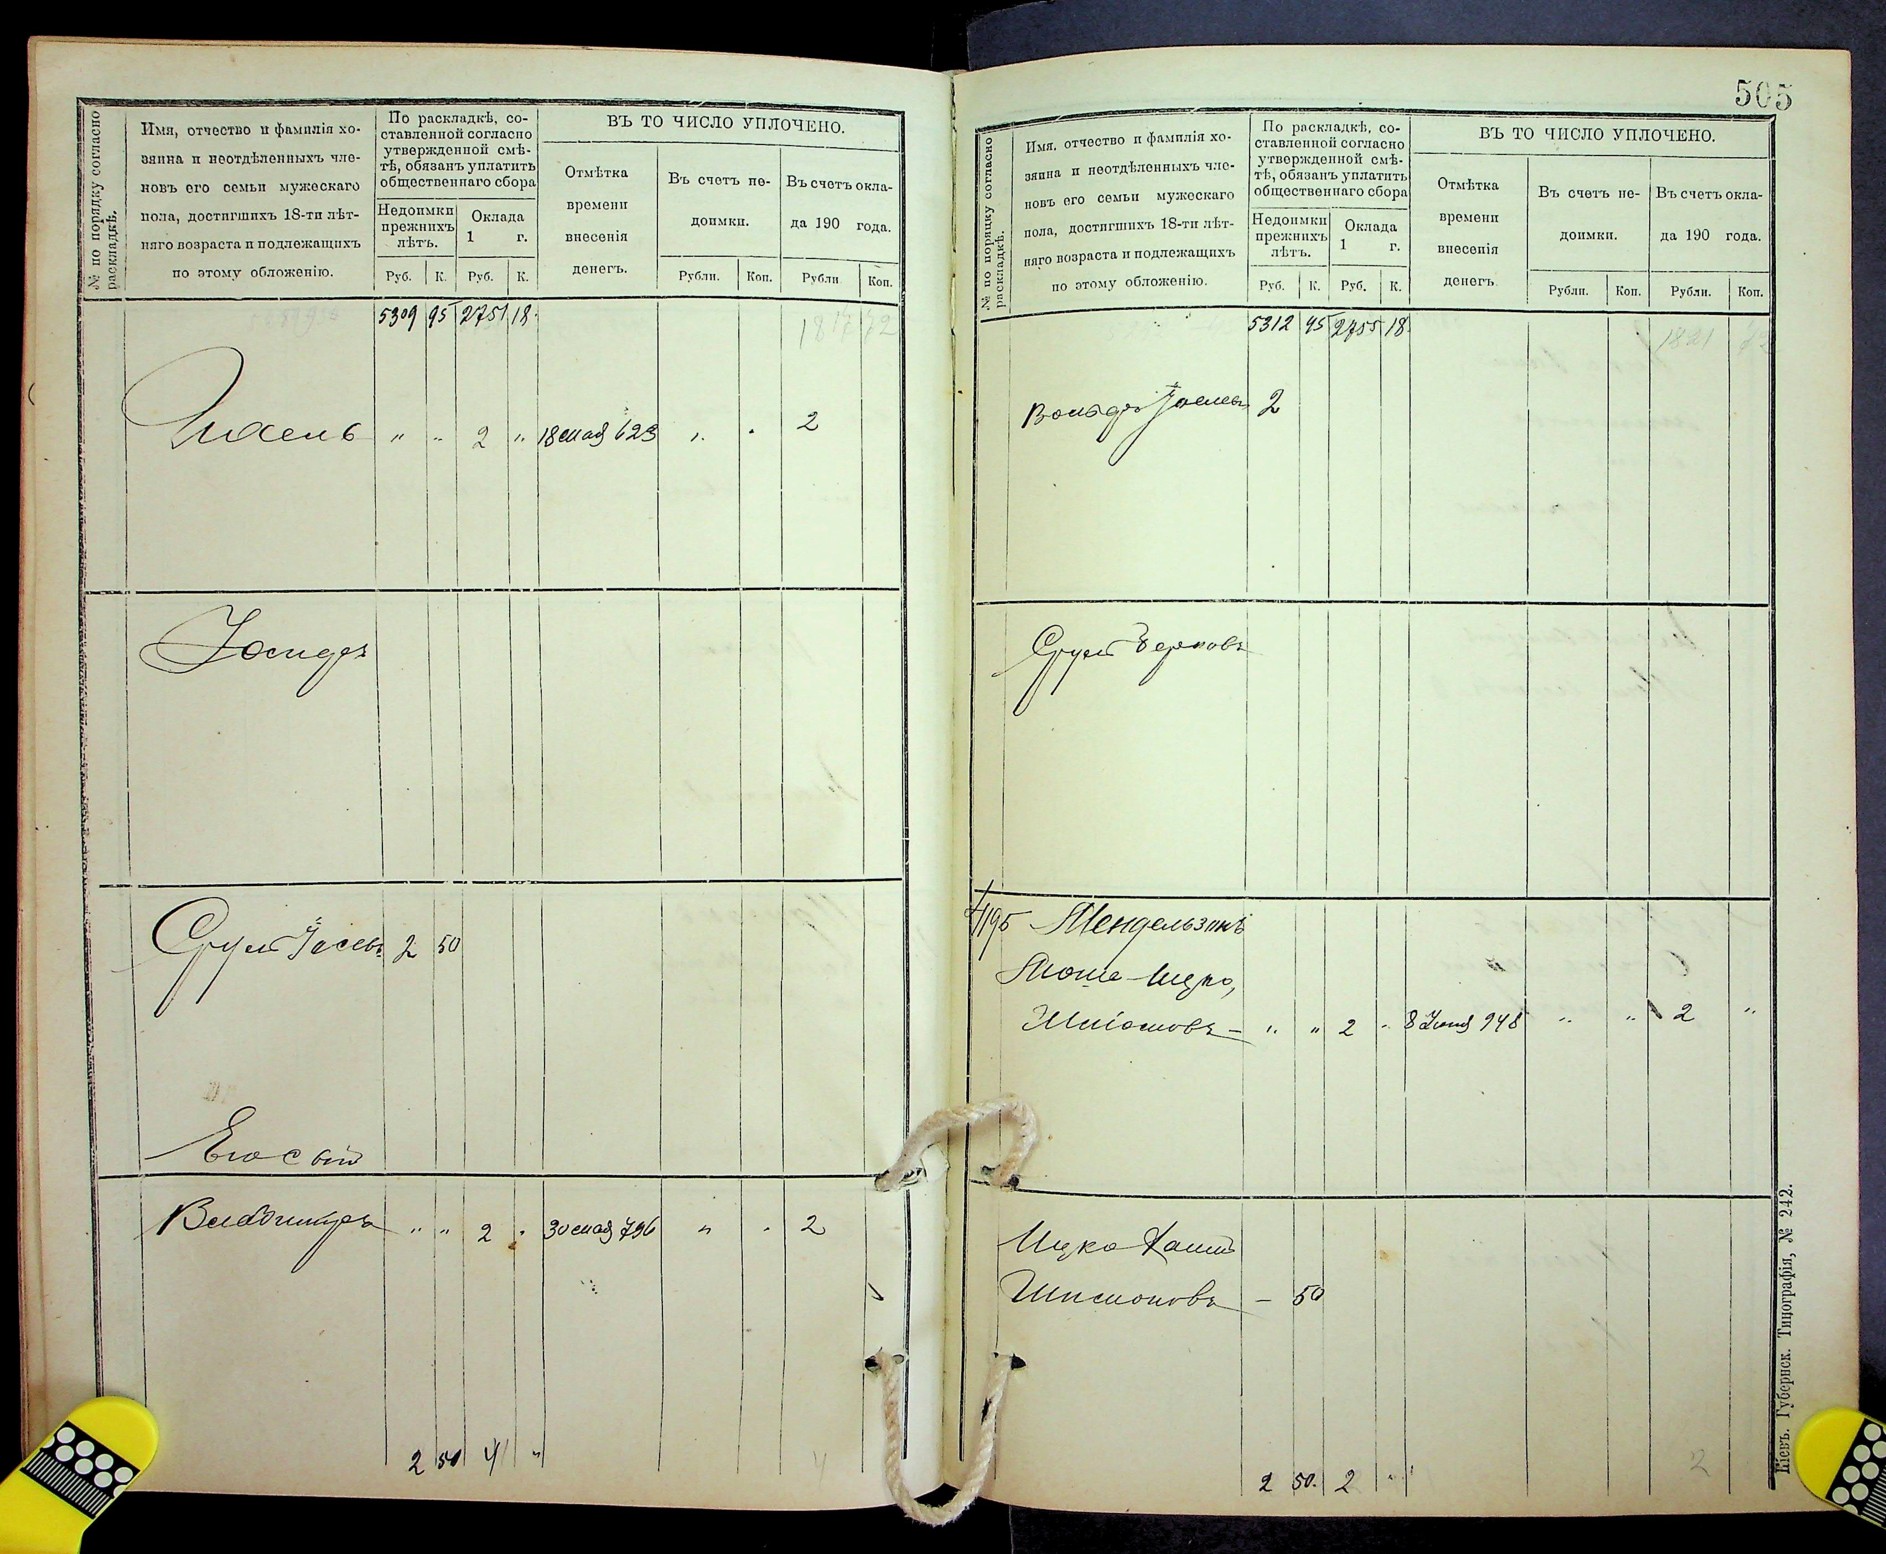 № по порядку согласно раскладкѣ.
Имя, отчество и фамилія хо-
зяина и неотдѣленныхъ чле-
новъ его семьи мужескаго
пола, достигшихъ 18-ти лѣт-
няго возраста и подлежащихъ
по этому обложенію.
По раскладкѣ, со-
ставленной согласно
утвержденной смѣ-
тѣ, обязанъ уплатить
общественнаго сбора
Недоимки
прежнихъ
лѣтъ.
Оклада
1 г.
Руб. К. Руб. К.
ВЪ ТО ЧИСЛО УПЛОЧЕНО.
Отмѣтка
времени
внесенія
денегъ.
Въ счетъ не-
доимки.
Въ счетъ окла-
да 190 года.
Рубли. Коп. Рубли Коп.
5309 95 2751 18
1817 72
" " 2 " 18 мая 623 " . 2
Сруль 2 50
Его сынъ
" " 2 " 30 мая 796 " " 2
2 50 4 "
4
505
№ по порядку согласно раскладкѣ.
Имя, отчество и фамилія хо-
зяина и неотдѣленныхъ чле-
новъ его семьи мужескаго
пола, достигшихъ 18-ти лѣт-
няго возраста и подлежащихъ
по этому обложенію.
По раскладкѣ, со-
ставленной согласно
утвержденной смѣ-
тѣ, обязанъ уплатить
общественнаго сбора
Недоимки
прежнихъ
лѣтъ.
Оклада
1 г.
Руб. К. Руб. К.
ВЪ ТО ЧИСЛО УПЛОЧЕНО.
Отмѣтка
времени
внесенія
денегъ.
Въ счетъ не-
доимки.
Въ счетъ окла-
да 190 года.
Рубли. Коп. Рубли. Коп.
5312 95 2755 18
1821 72
2
Сруль Берковъ
4195 Мендельзонъ
Мошe-Ицко,
Шліомовъ - " " 2 " 8 Іюня 948 " " 2 "
Ицко Хаимъ
Шимоновъ - 50
2 50. 2 "
2
Кіевъ. Губернск. Типографія, № 242.